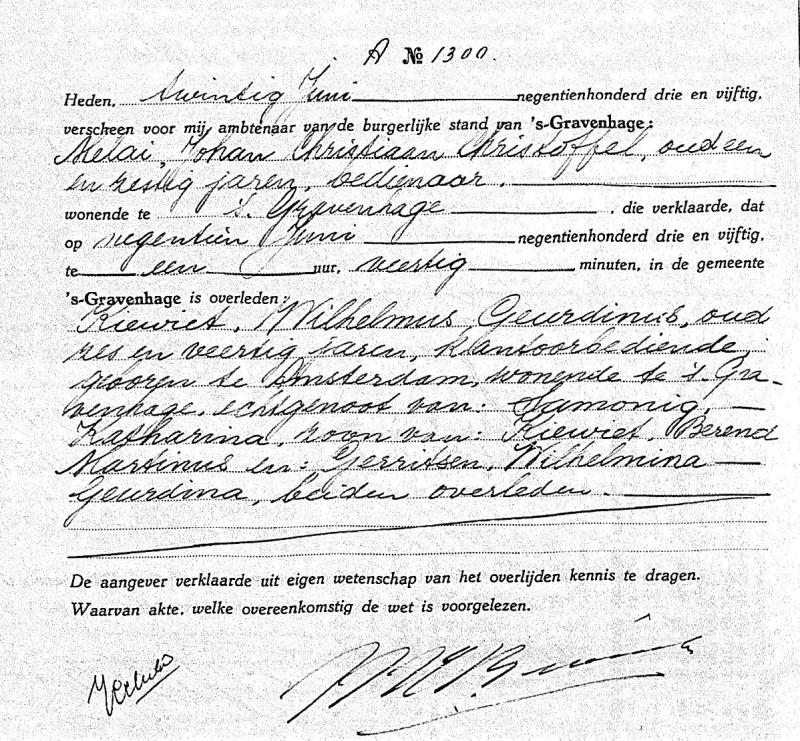 A № 1300.
Heden, twintig Juni negentienhonderd drie en vijftig,
verscheen voor mij ambtenaar van de burgerlijke stand van 's-Gravenhage:
Melai, Johan Christiaan Christoffel, oud een
en zestig jaren, bedienaar,
wonende te 's. Gravenhage, die verklaarde, dat
op negentien Juni negentienhonderd drie en vijftig,
te een uur, veertig minuten, in de gemeente
's-Gravenhage is overleden:
Kiewiet, Wilhelmus Geurdinus, oud
zes en veertig jaren, kantoorbediende,
geboren te Amsterdam, wonende te 's. Gra-
venhage, echtgenoot van: Samonig,
Katharina, zoon van: Kiewiet, Berend
Martinus en: Gerritsen, Wilhelmina
Geurdina, beiden overleden.
De aangever verklaarde uit eigen wetenschap van het overlijden kennis te dragen.
Waarvan akte, welke overeenkomstig de wet is voorgelezen.